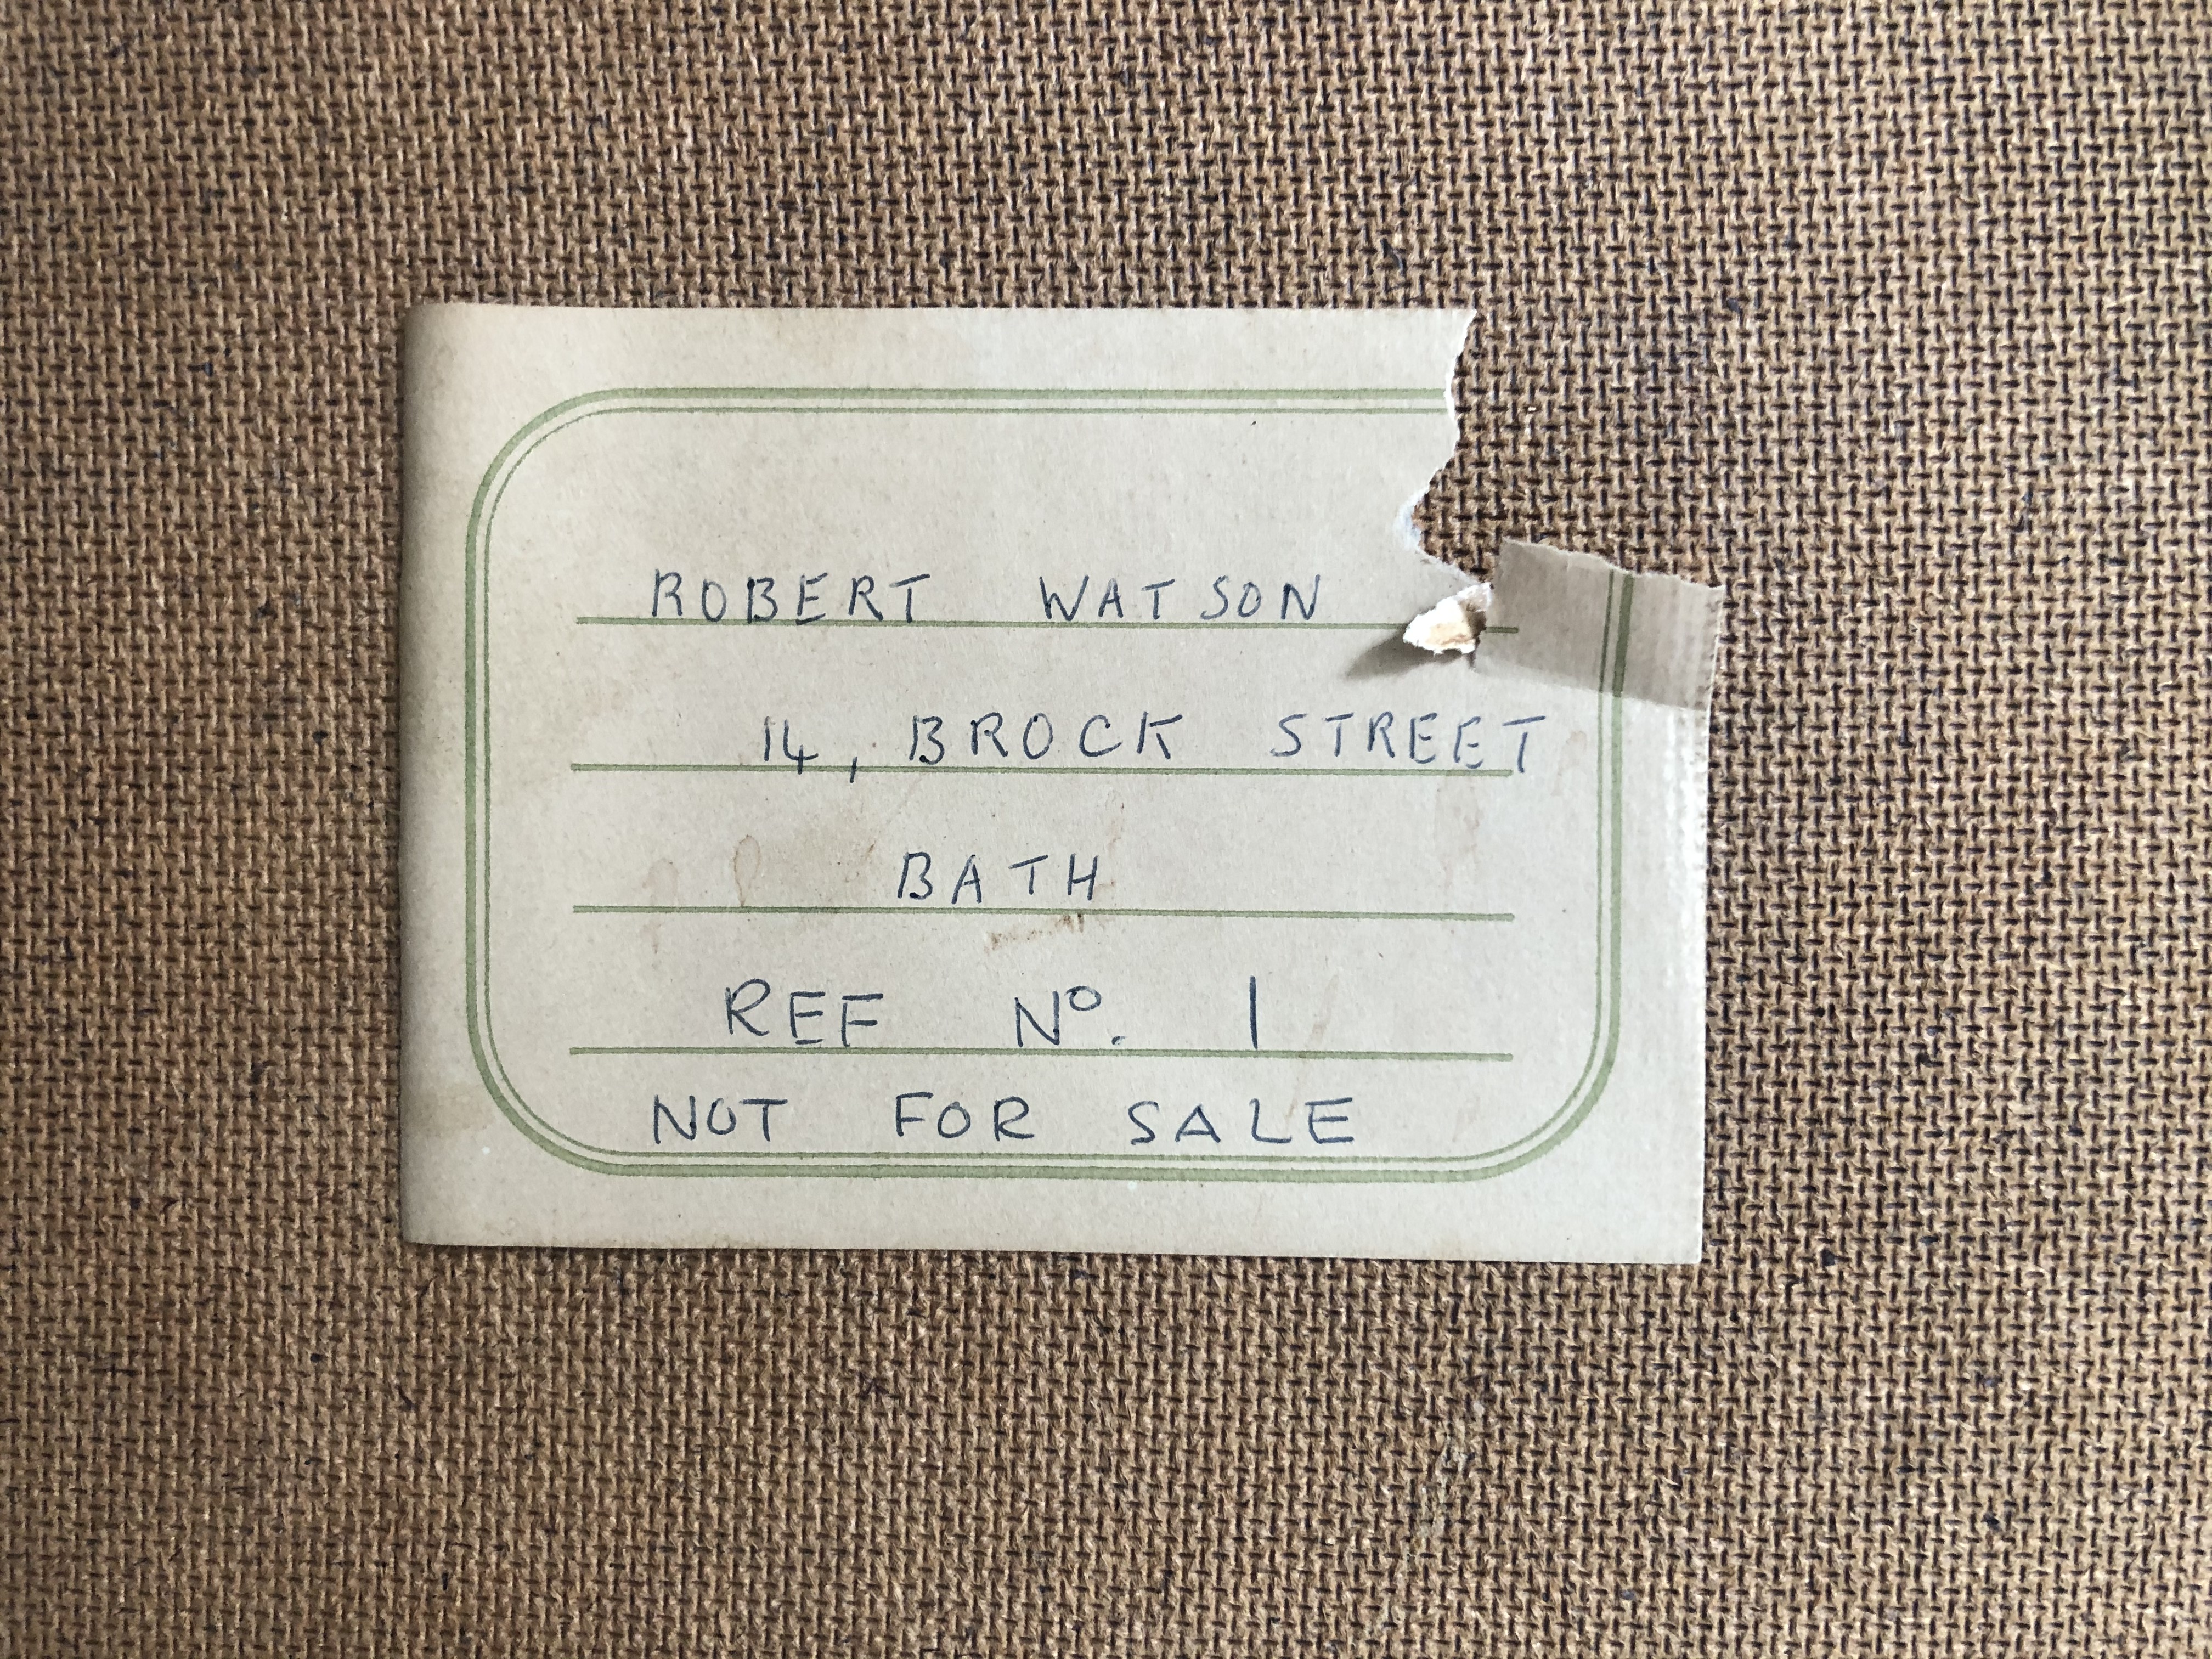 ROBERT WATSON
14, BROCK STREET
BATH
REF Nº. 1
NOT FOR SALE